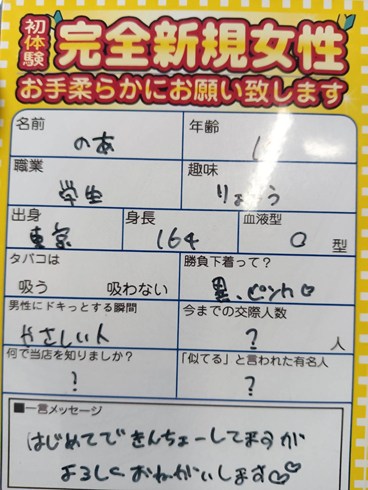 初体験 完全新規女性
お手柔らかにお願い致します
名前 のあ 年齢
職業 学生 趣味 りょうり
出身 東京 身長 164 血液型 O 型
タバコは 吸う 吸わない 勝負下着って? 黒、ピンク♡
男性にドキっとする瞬間 やさしい人 今までの交際人数 ? 人
何で当店を知りましたか? ? 「似てる」と言われた有名人 ?
■一言メッセージ
はじめてできんちょーしてますが
よろしくおねがいします♡♡